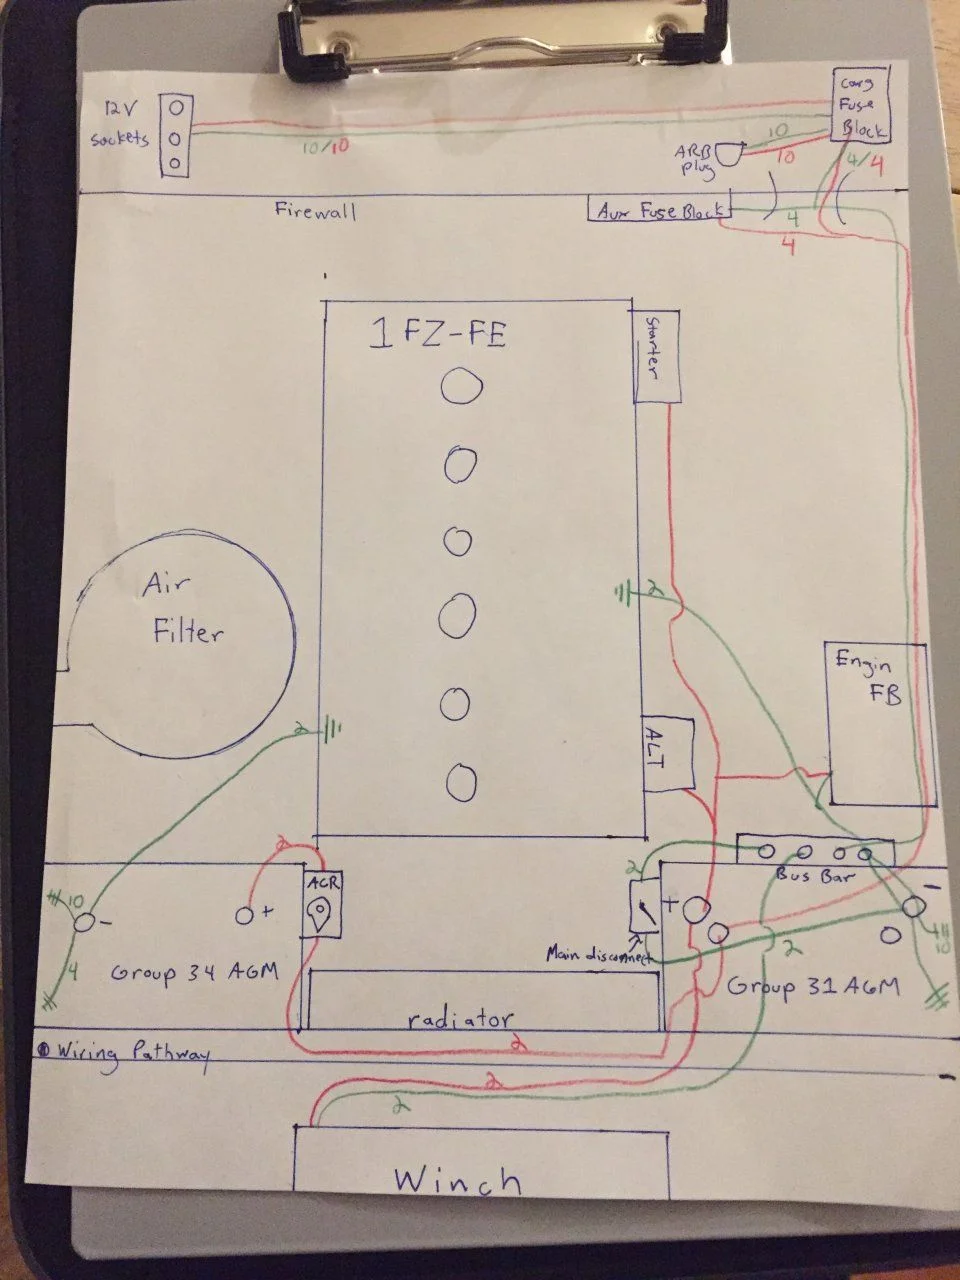 12V
sockets
Carg
Fuse
Block
10/10
10
10
ARB
plug
4/4
Firewall
Aux Fuse Block
4
4
1FZ-FE
Starter
Air
Filter
2
Engin
FB
2
ALT
2
2
ACR
Bus Bar
10
+
-
+
-
10
4
Group 34 AGM
Main disconnect
2
Group 31 AGM
radiator
Wiring Pathway
2
2
2
Winch